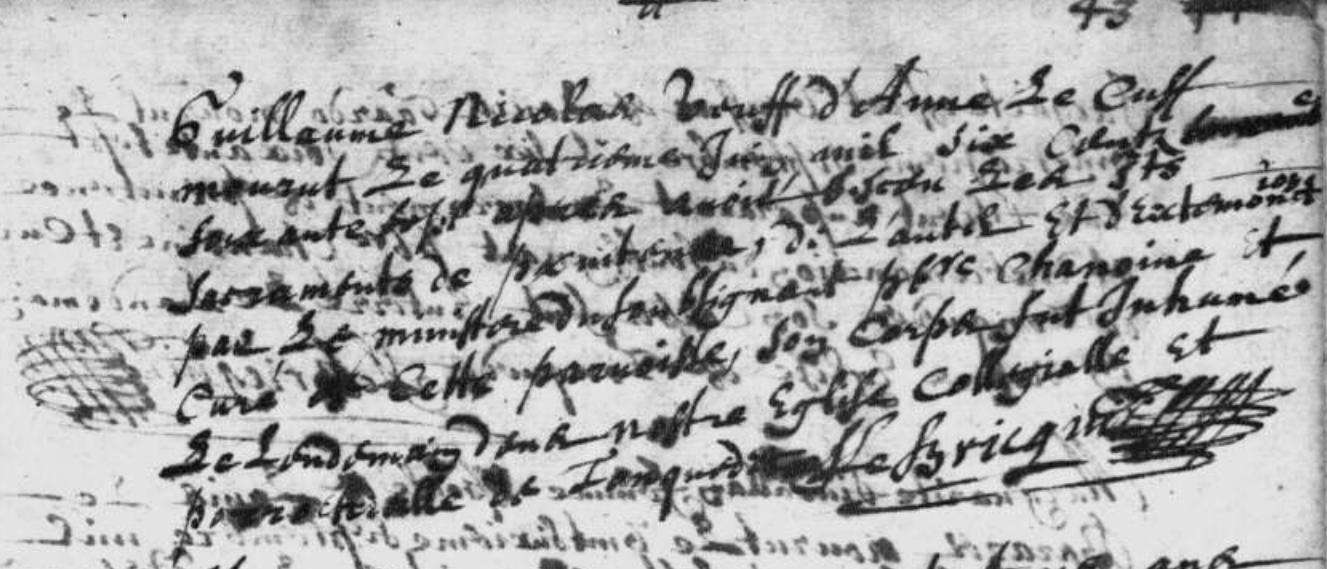 43
Guillaume Nicolas veuff d'Anne Le Cuff
mourut Le quatriesme Juin mil six Cents
soixante sept apres avoir Les Sts
Sacrements de penitence, de L'autel Et d'Extremonction
par Le ministere du soubsignant pbre Chanoine Et
Curé de Cette parroisse, son Corps fut Inhumé
Le Lendemain dans nostre Eglise Collegialle Et
parrochialle de Tonquedec